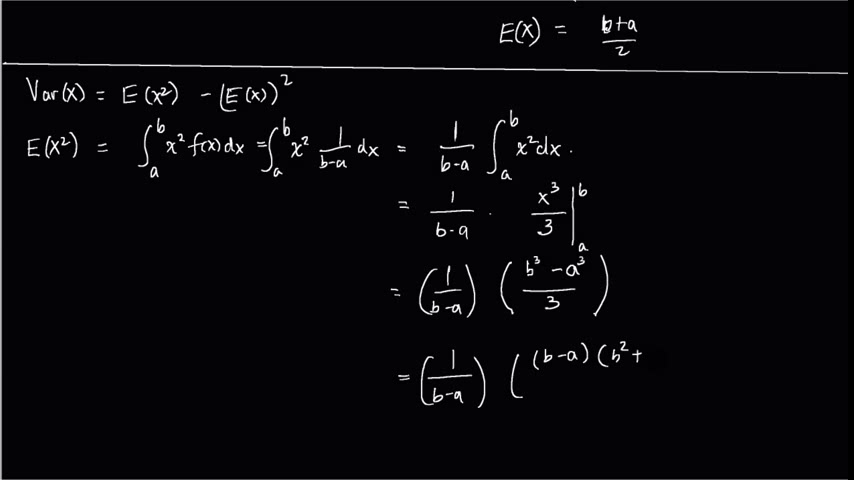 E(X) = (b+a)/2
Var(X) = E(X²) - (E(X))²
E(X²) = ∫ₐᵇ x² f(x) dx = ∫ₐᵇ x² 1/(b-a) dx = 1/(b-a) ∫ₐᵇ x² dx.
= 1/(b-a) · x³/3 |ₐᵇ
= (1/(b-a)) ((b³ - a³)/3)
= (1/(b-a)) ( (b-a) (b² +